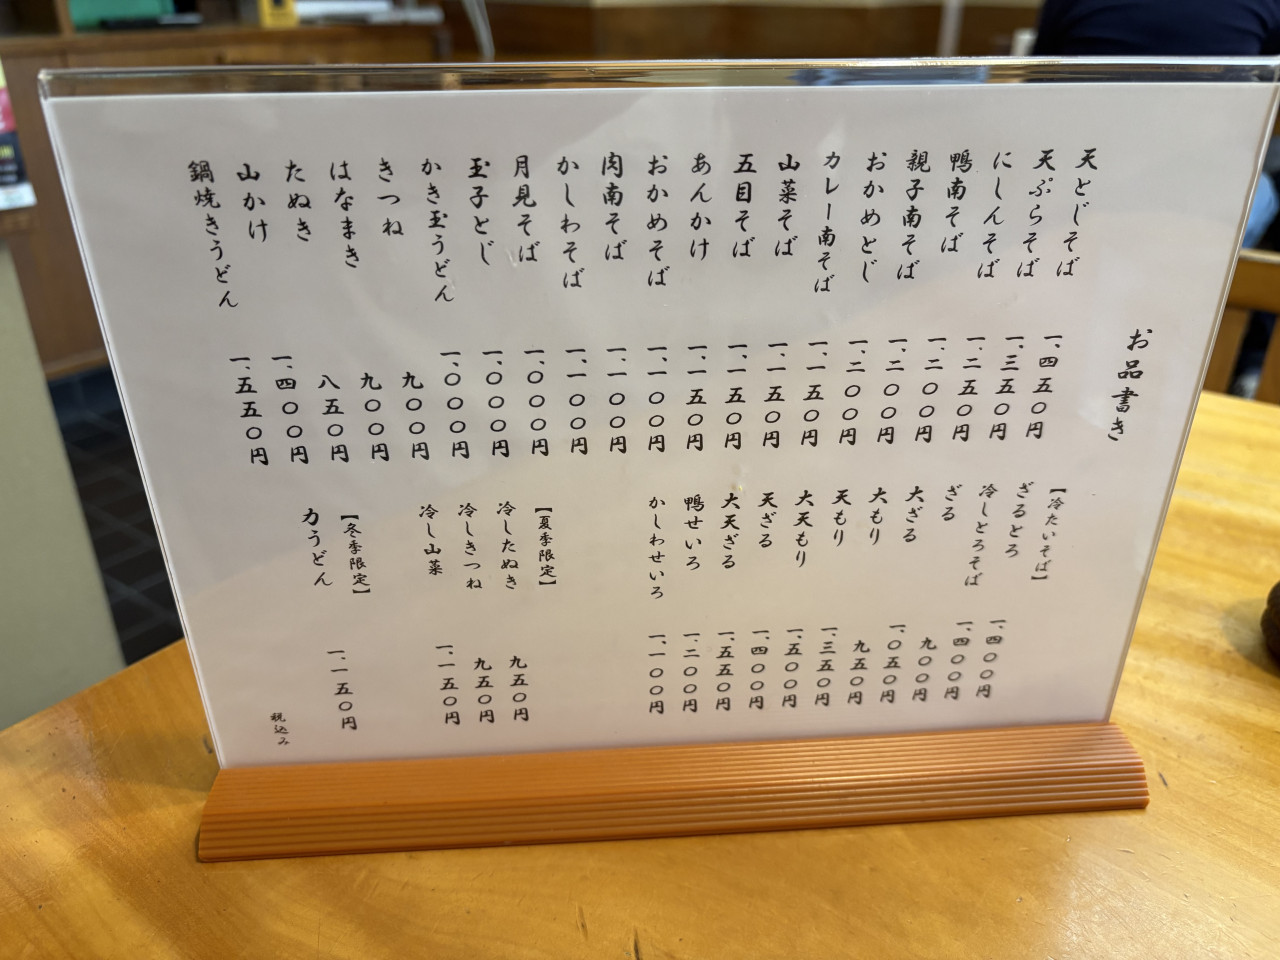 お品書き
天とじそば 一、四五〇円
天ぷらそば 一、三五〇円
にしんそば 一、二五〇円
鴨南そば 一、二〇〇円
親子南そば 一、二〇〇円
おかめとじ 一、二〇〇円
カレー南そば 一、一五〇円
山菜そば 一、一五〇円
五目そば 一、一五〇円
あんかけ 一、一五〇円
おかめそば 一、一〇〇円
肉南そば 一、一〇〇円
かしわそば 一、一〇〇円
月見そば 一、〇〇〇円
玉子とじ 一、〇〇〇円
かき玉うどん 一、〇〇〇円
きつね 九〇〇円
はなまき 九〇〇円
たぬき 八五〇円
山かけ 一、四〇〇円
鍋焼きうどん 一、五五〇円
【冷たいそば】
ざるとろ 一、四〇〇円
冷しとろそば 一、四〇〇円
ざる 九〇〇円
大ざる 一、〇五〇円
大もり 九五〇円
天もり 一、三五〇円
大天もり 一、五〇〇円
天ざる 一、四〇〇円
大天ざる 一、五五〇円
鴨せいろ 一、二〇〇円
かしわせいろ 一、一〇〇円
【夏季限定】
冷したぬき 九五〇円
冷しきつね 九五〇円
冷し山菜 一、一五〇円
【冬季限定】
力うどん 一、一五〇円
税込み